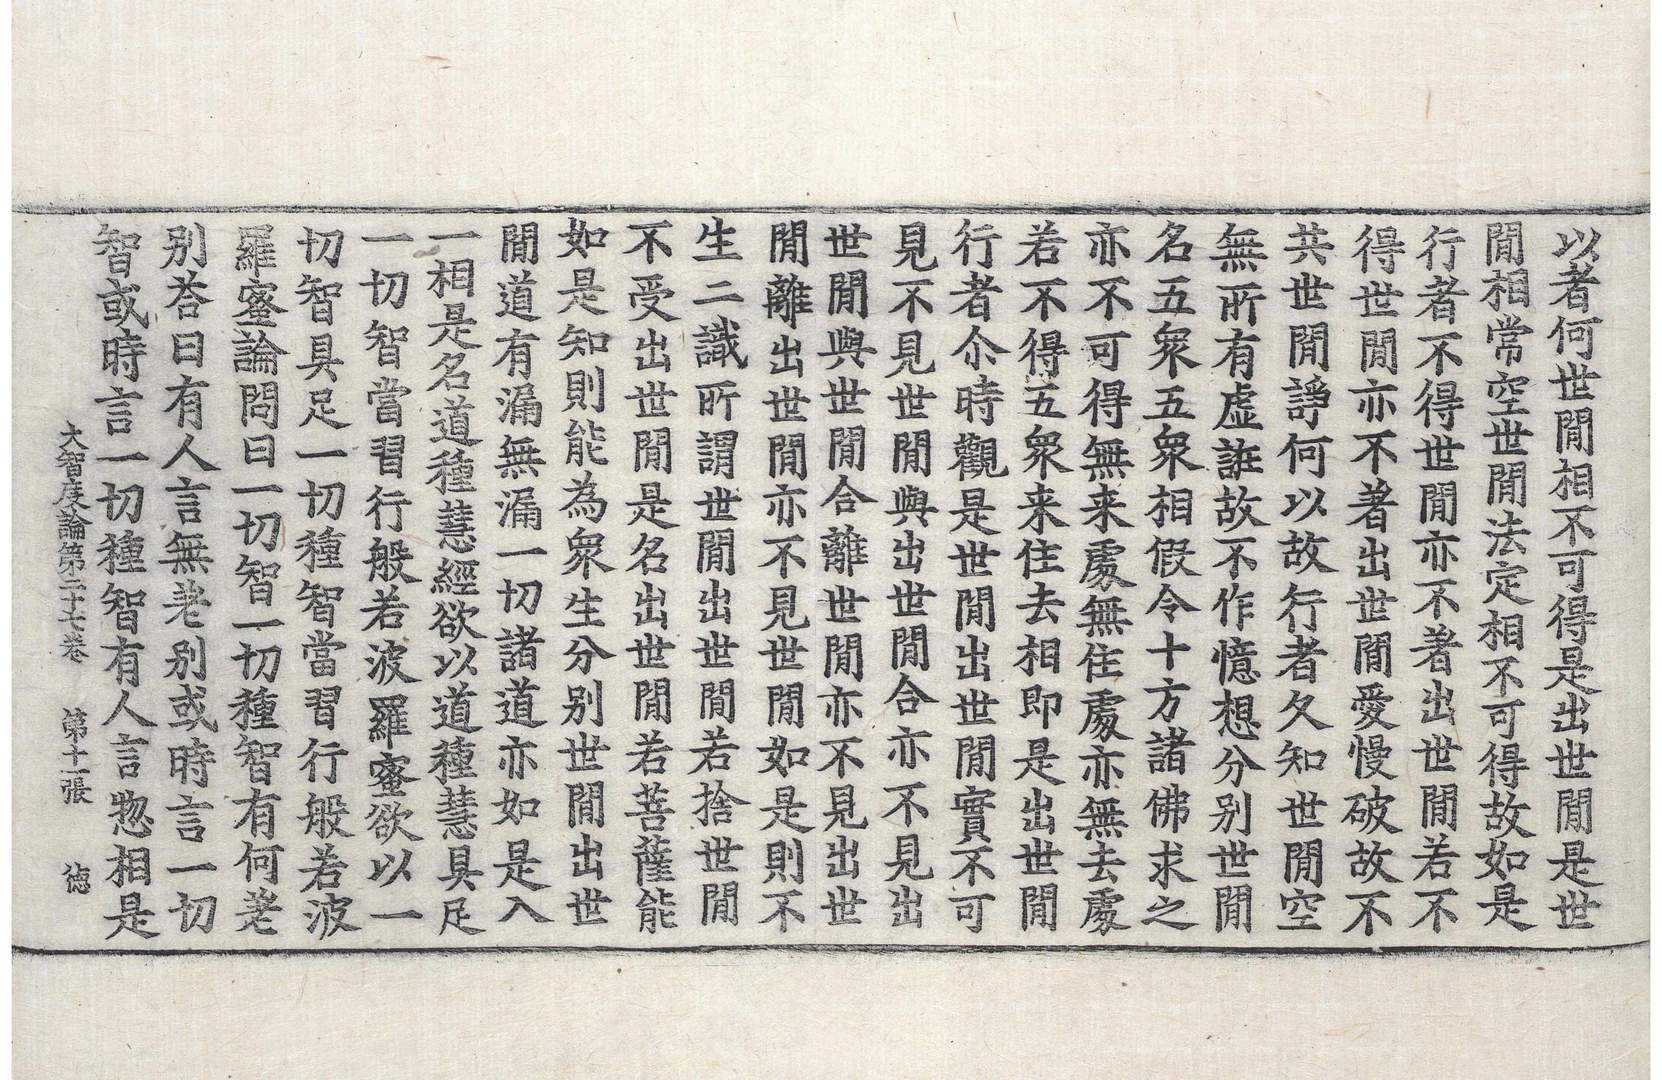 以者何世閒相不可得是出世閒是世
閒相常空世閒法定相不可得故如是
行者不得世閒亦不著出世閒若不
得世閒亦不著出世閒愛慢破故不
共世閒諍何以故行者久知世閒空
無所有虛誑故不作憶想分別世閒
名五衆五衆相假令十方諸佛求之
亦不可得無来處無住處亦無去處
若不得五衆来住去相即是出世閒
行者尒時觀是世閒出世閒實不可
見不見世閒與出世閒合亦不見出
世閒與世閒合離世閒亦不見出世
閒離出世閒亦不見世閒如是則不
生二識所謂世閒出世閒若捨世閒
不受出世閒是名出世閒若菩薩能
如是知則能為衆生分別世閒出世
閒道有漏無漏一切諸道亦如是入
一相是名道種慧經欲以道種慧具足
一切智當習行般若波羅蜜欲以一
切智具足一切種智當習行般若波
羅蜜論問曰一切智一切種智有何差
別荅曰有人言無差別或時言一切
智或時言一切種智有人言惣相是
大智度論第二十七卷 第十一張 徳